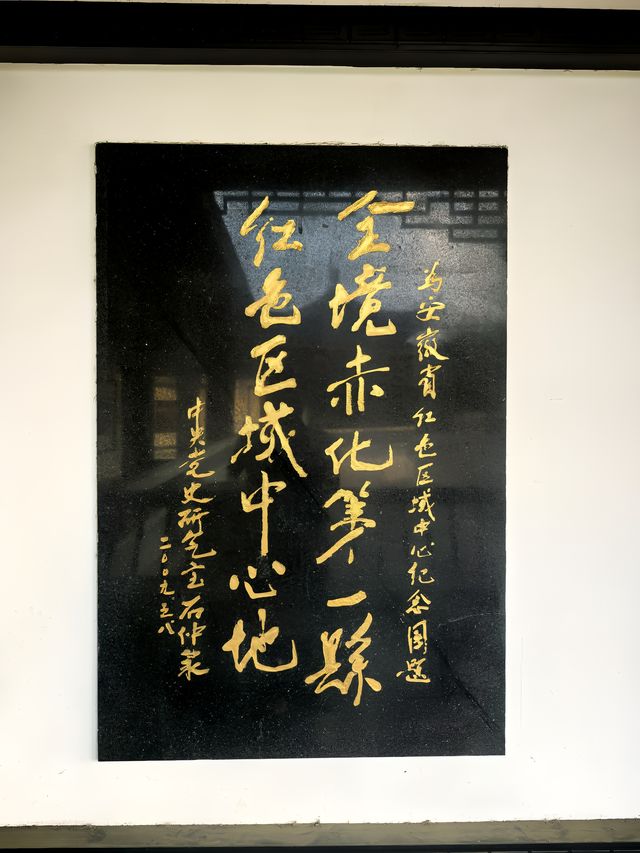 为安徽省红色区域中心纪念園题
全境赤化第一縣
红色区域中心地
中央党史研究室石仲泉
二〇〇九.五.八